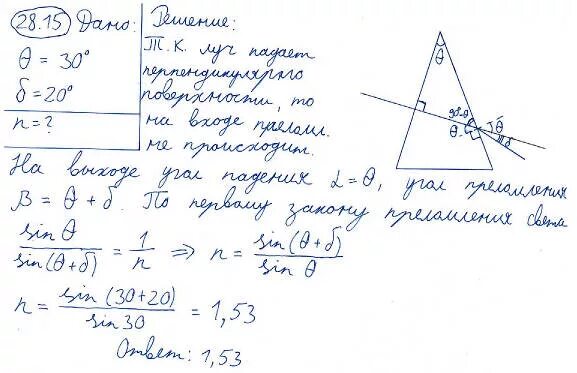 28.15 Дано: Решение:
θ = 30°
δ = 20°
n = ?
Т.К. луч падает
перпендикулярно
поверхности, то
на входе прелом.
не происходит.
θ
90-θ
θ
θ
δ
На выходе угол падения α = θ, угол преломления
β = θ + δ. По первому закону преломления света
sin θ / sin(θ+δ) = 1/n ⇒ n = sin(θ+δ) / sin θ
n = sin(30+20) / sin 30 = 1,53
Ответ: 1,53